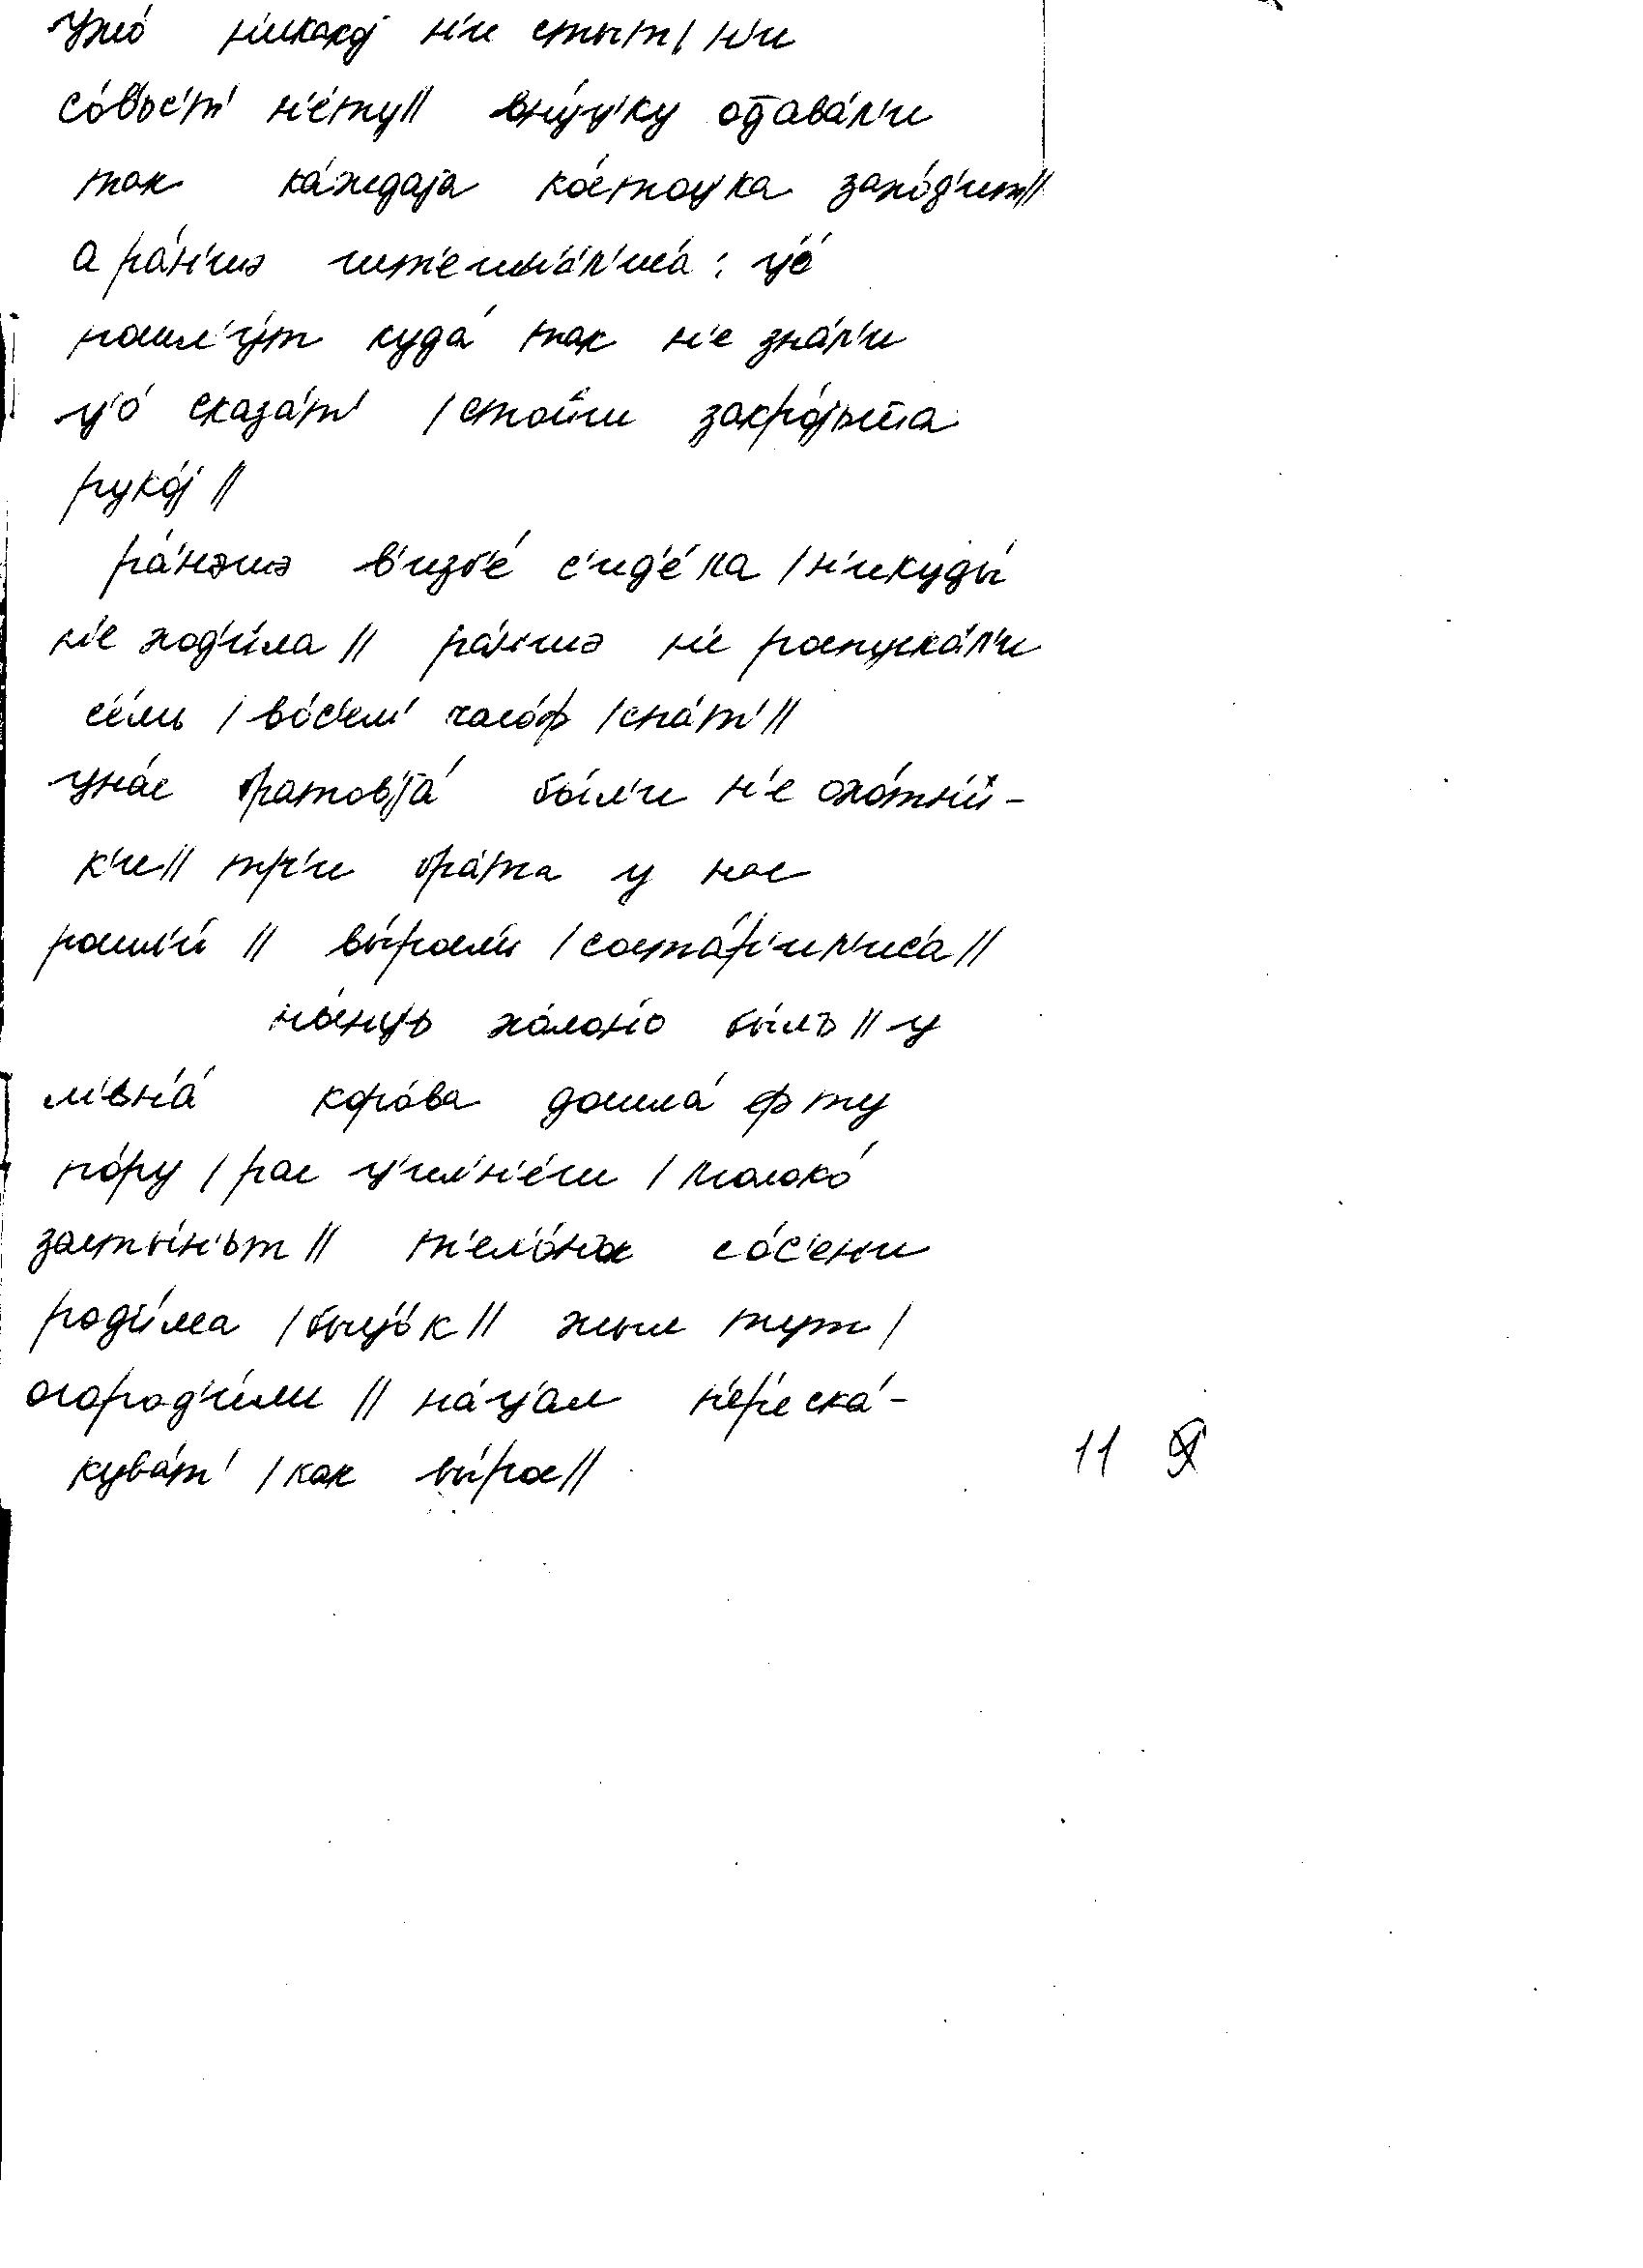 ужо́ н'икакој н'и стыт / н'и
со́в'ьс'т' н'е́ту // вну́ц'ку од̅ава́л'и
так ка́ждаја ко́стоц'ка захо́д'ит //
а ра́н'шэ
пошл'у́т куда́ так н'е зна́л'и
ц'о́ сказа́т' / стои́ш закро́јьс̅а
руко́ј //
ра́нэшэ в'изб'е́ с'ид'е́ла / н'икуды́
н'е ход'и́ла // ра́н'шэ н'е роспуска́л'и
с'е́мь / во́с'ем' часо́ф / спа́т' //
уна́с братов'jа́ бы́л'и н'е охо́тн'и-
к'и // тр'и бра́та у нас
росл'и́ // вы́росл'и / соста́р'ил'ис'а //
ны́нц'ь хо́лоно бы́лъ // у
м'ен'а́ коро́ва дошла́ ф ту
по́ру / рас / молоко́
засты́н'ьт // т'ел'о́нък со́с'ени
род'и́лса / быц'о́к // жыл тут /
огород'и́ли // на́ц'ал п'ер'еска́-
куват' / как вы́рос //
11